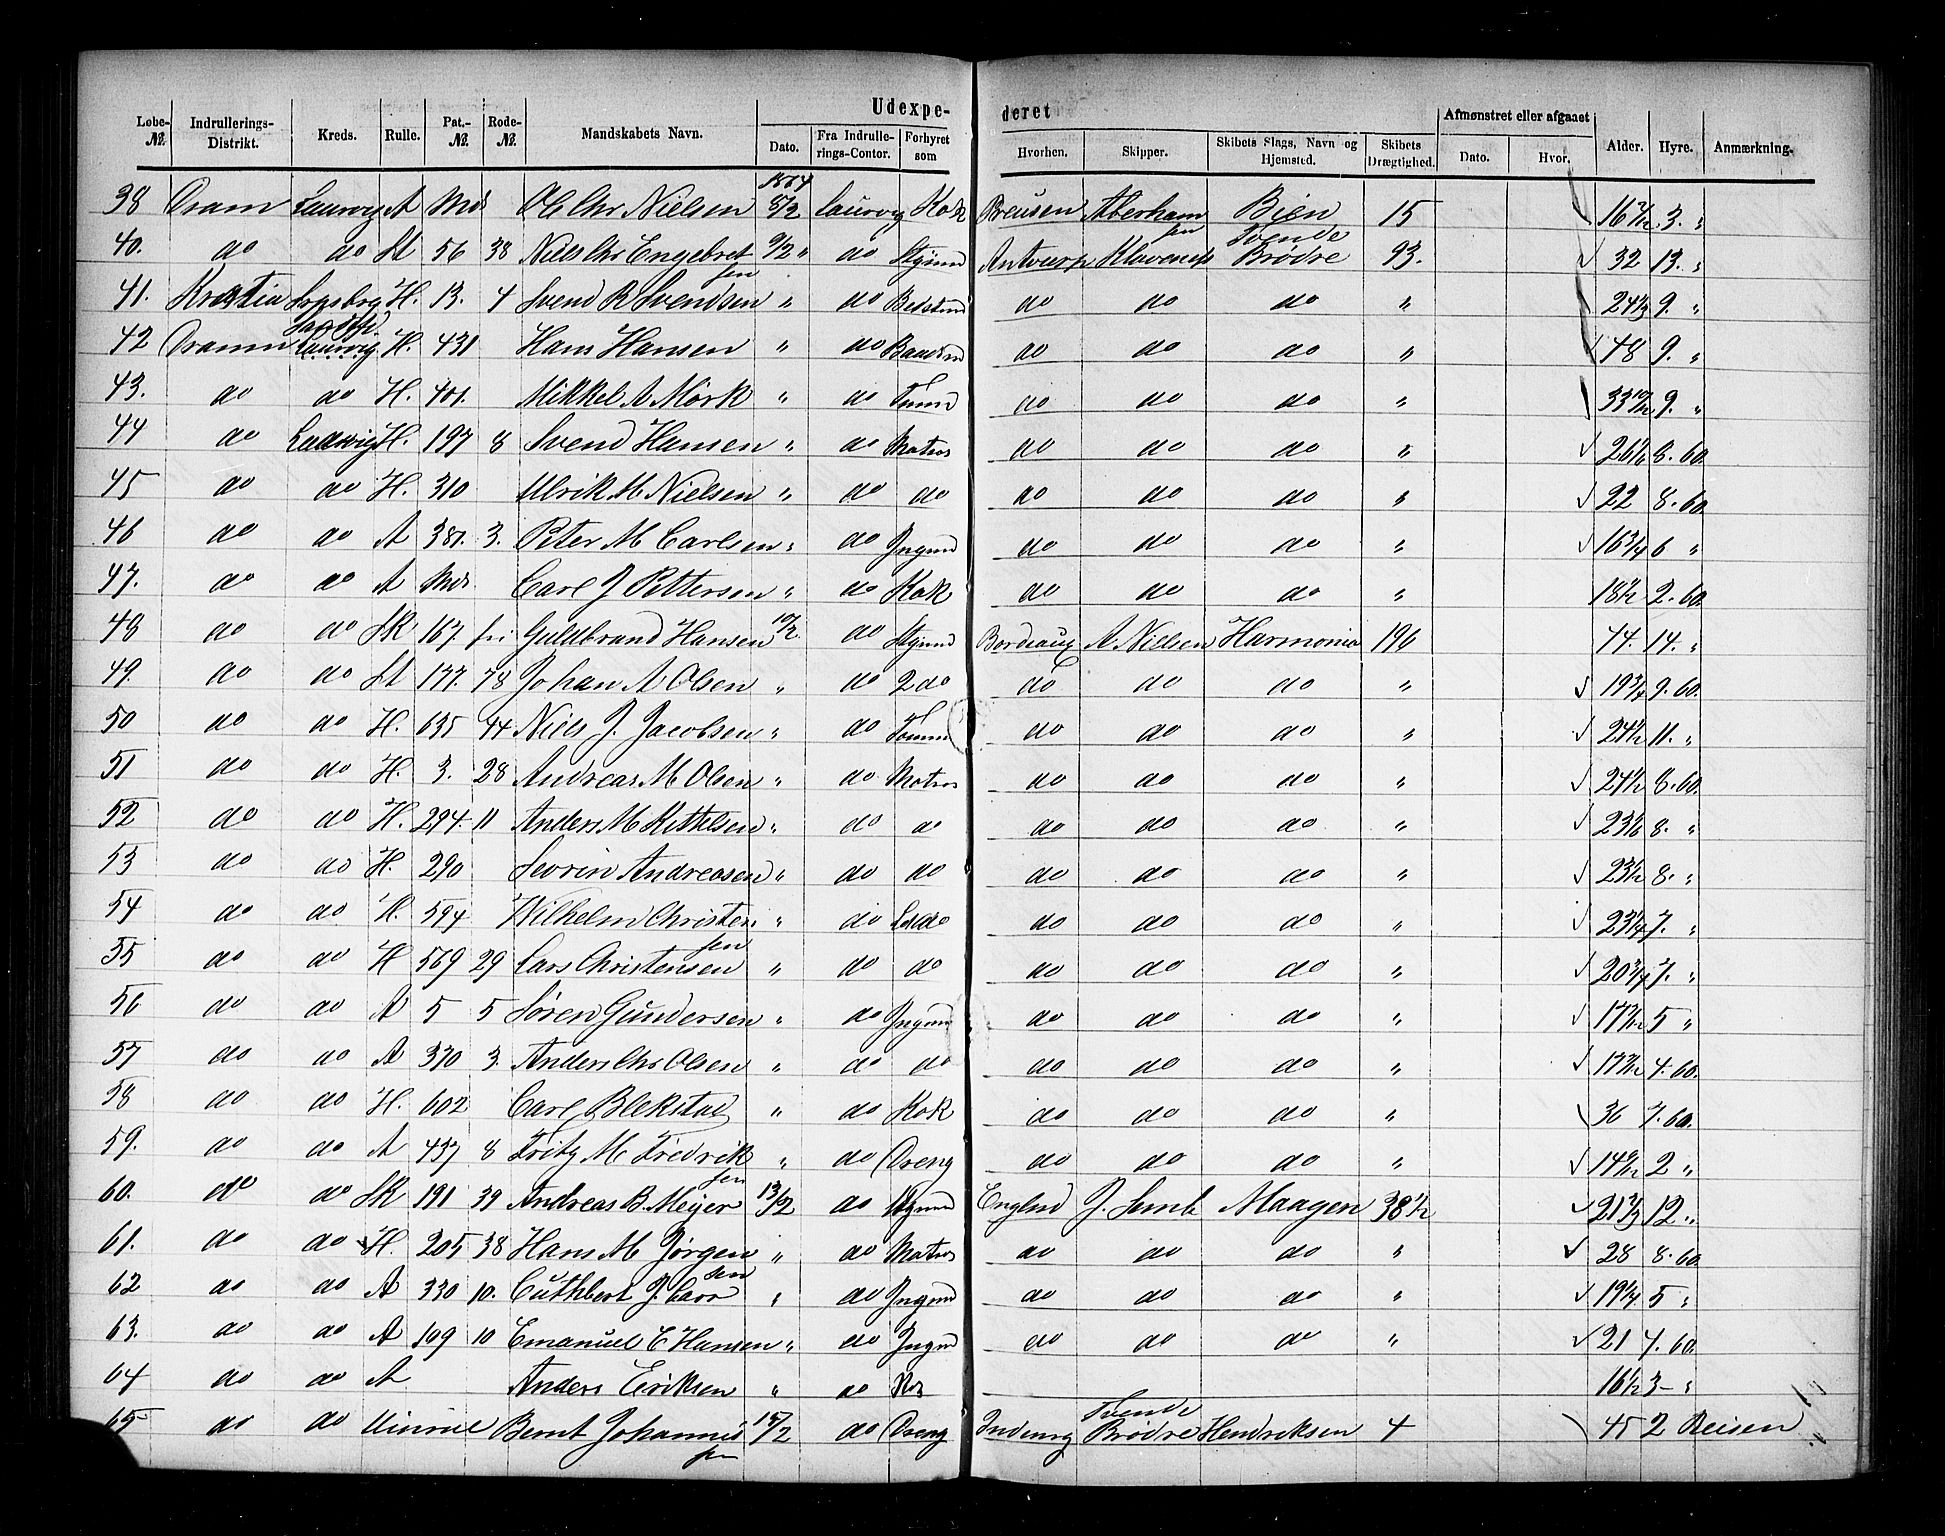 Udexpe- deret
Løbe-№. Indrullerings-Distrikt. Kreds. Rulle. Pat.-№. Rode-№. Mandskabets Navn. Dato. Fra Indrullerings-Contor. Forhyret som Hvorhen. Skipper. Skibets Slags, Navn og Hjemsted. Skibets Drægtighed. Afmønstret eller afgaaet Dato. Hvor. Alder. Hyre. Anmærkning.
1874
38 Dram Laurvig A Mds Ole Chr Nielsen 8/2 Laurvig Kok Breusen Aberham sen Bien 15 3. "
40. do do St 56 38 Niels Chr Engebret sen 9/2 " do Stymd Antverp Klavenes Tvende Brødre 93. 32 13. "
41. Krstia H. 13. 4 Svend R Svendsen " do Bedstmd do do do " 9. "
42 Dramn Laurvig H. 431 Hans Hansen " do Baadsmd do do do " 48 9. "
43. do do H. 401. Mikkel A Mørk " do Tmmd do do do " 33 10/12 9. "
44 do H. 197 8 Svend Hansen " do Matros do do do " 8. 60
45 do do H. 310 Ulrik M Nielsen " do do do do do " 22 8. 60
46 do do A 381. 3. Peter M Carlsen " do Jngmd do do do " 16 3/4 6 "
47. do do A Mds. Carl J Pettersen " do Kok do do do " 18 1/2 2. 60
48 do do SK 167. fri Guldbrand Hansen 10/2 do Stymd Bordeaux A. Nielsen Harmonia 196 44. 14. "
49. do do St 177. 78 Johan A Olsen " do 2 do do do do " 19 3/4 9. 60.
50 do do H. 635 44 Niels J. Jacobsen " do Tømm do do do " 24 1/2 11. "
51 do do H. 3. 28 Andreas M Olsen " do Matros do do do " 24 1/2 8. 60.
52 do do H. 294. 11 Anders M Kittelsen " do do do do do " 8. "
53 do do H. 290 Sevrin Andreasen " do do do do do " 23 1/2 8. "
54 do do H. 594 Wilhelm Christen sen " do do do do " 23 1/4 7. "
55 do do H 569 29 Lars Christensen " do do do do do " 20 3/4 7. "
56 do do A 5 5 Søren Gundersen " do Jngmd do do do " 5 "
57 do do A 370 3. Anders Chr Olsen " do do do do do " 4. 60.
58 do do H. 602 Carl Blekstad " do Kok do do do " 36 7. 60.
59. do do A 437 8 Fritz M Fredrik sen " do Dreng do do do " 2 "
60. do do SK 191 39 Andreas B. Meyer 13/2 do Stymd Englnd J. Sund Maagen 38 1/2 21 2/3 12. "
61. do do H. 205 38 Hans M Jørgen sen " do Matros do do do " 28 8. 60.
62 do do A 330 10. Cuthbert J. Carr " do Jngmd do do do " 19 1/4. 5 "
63. do do A 109 10 Emanuel E Hansen " do Jngmd do do do " 21 4. 60.
64 do do A Anders Eriksen " do Kok 16 1/2 3 - "
65 do do Bernt Johannes sen 15/2 do Dreng Tvende Brødre Hendriksen 4 45 2 Reisen